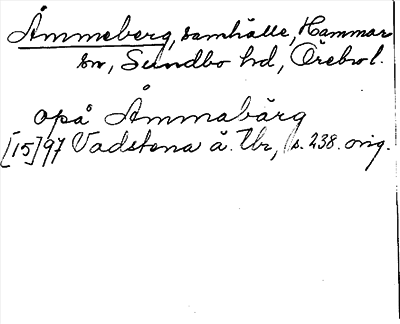 Åmmeberg, samhälle, Hammar
sn, Sundbo hd, Örebro l.
opå Åmmabärg
[15]97 Vadstena å. Ubr, s. 238. orig.